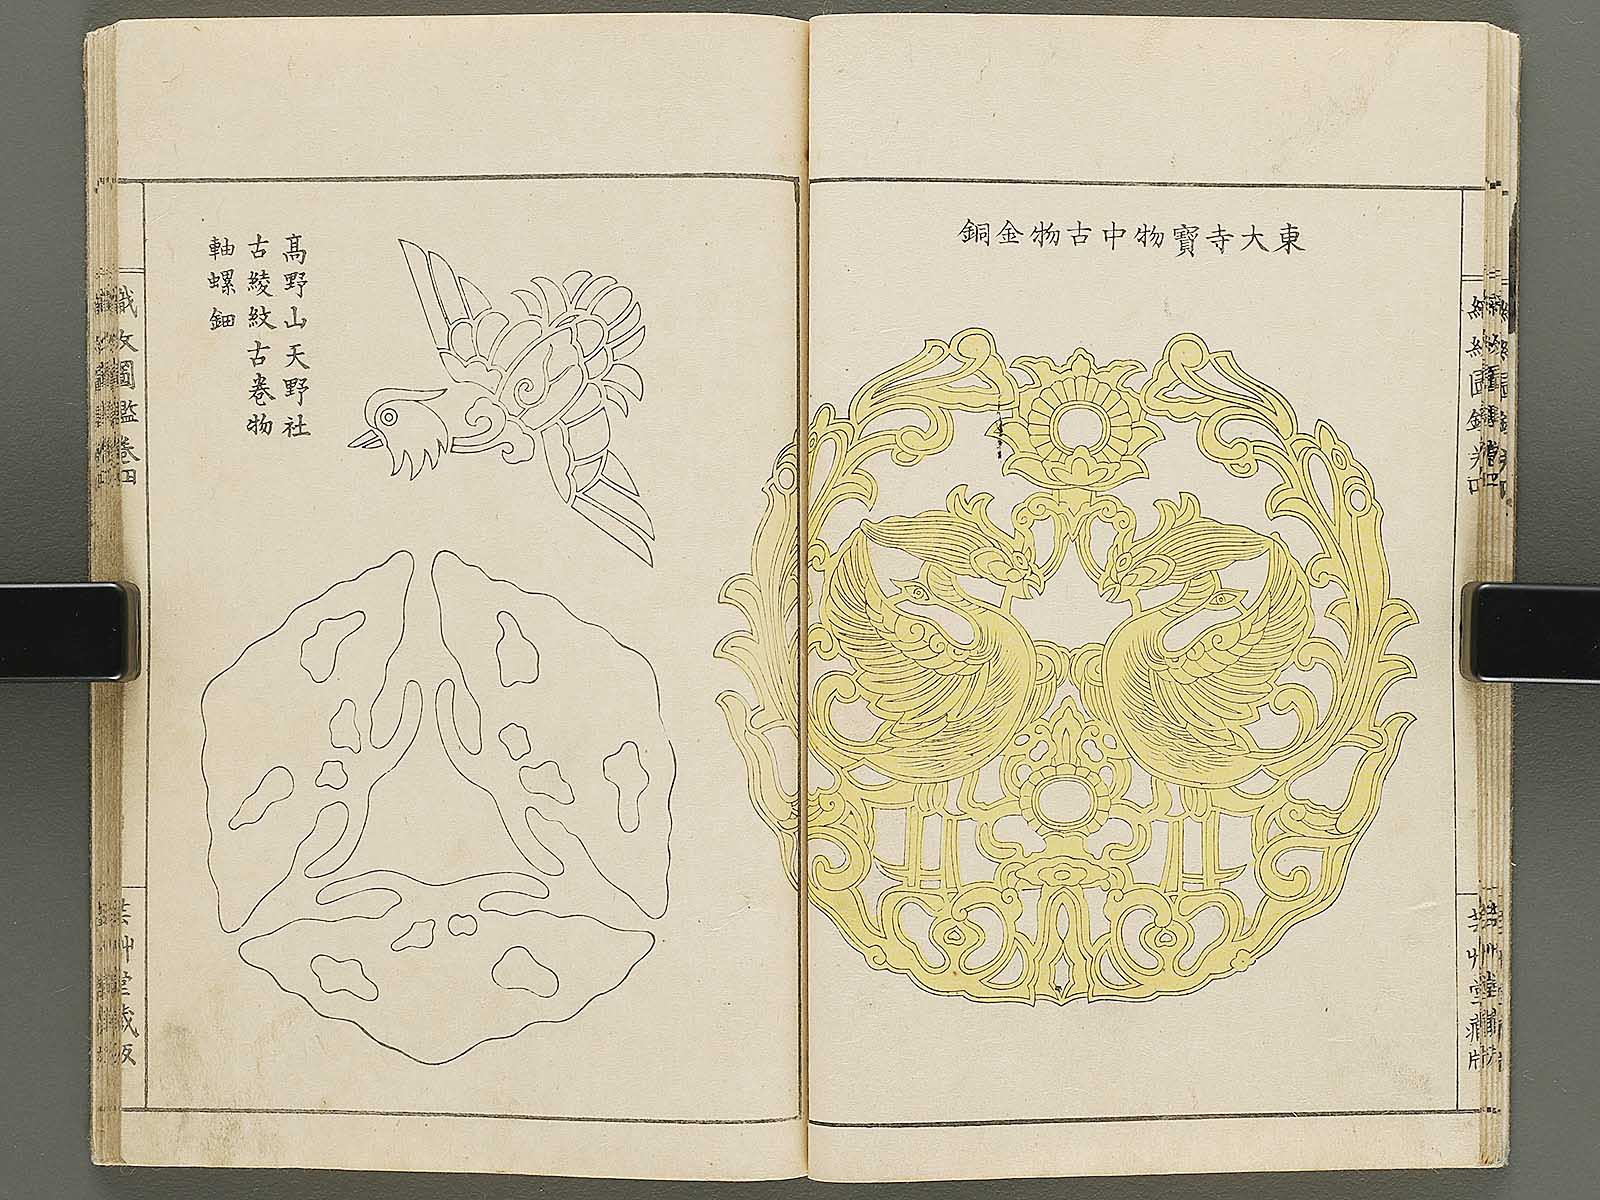 東大寺寶物中古物金銅
高野山天野社
古綾紋古巻物
軸螺鈿
織文圖鑑巻四
芸艸堂蔵版